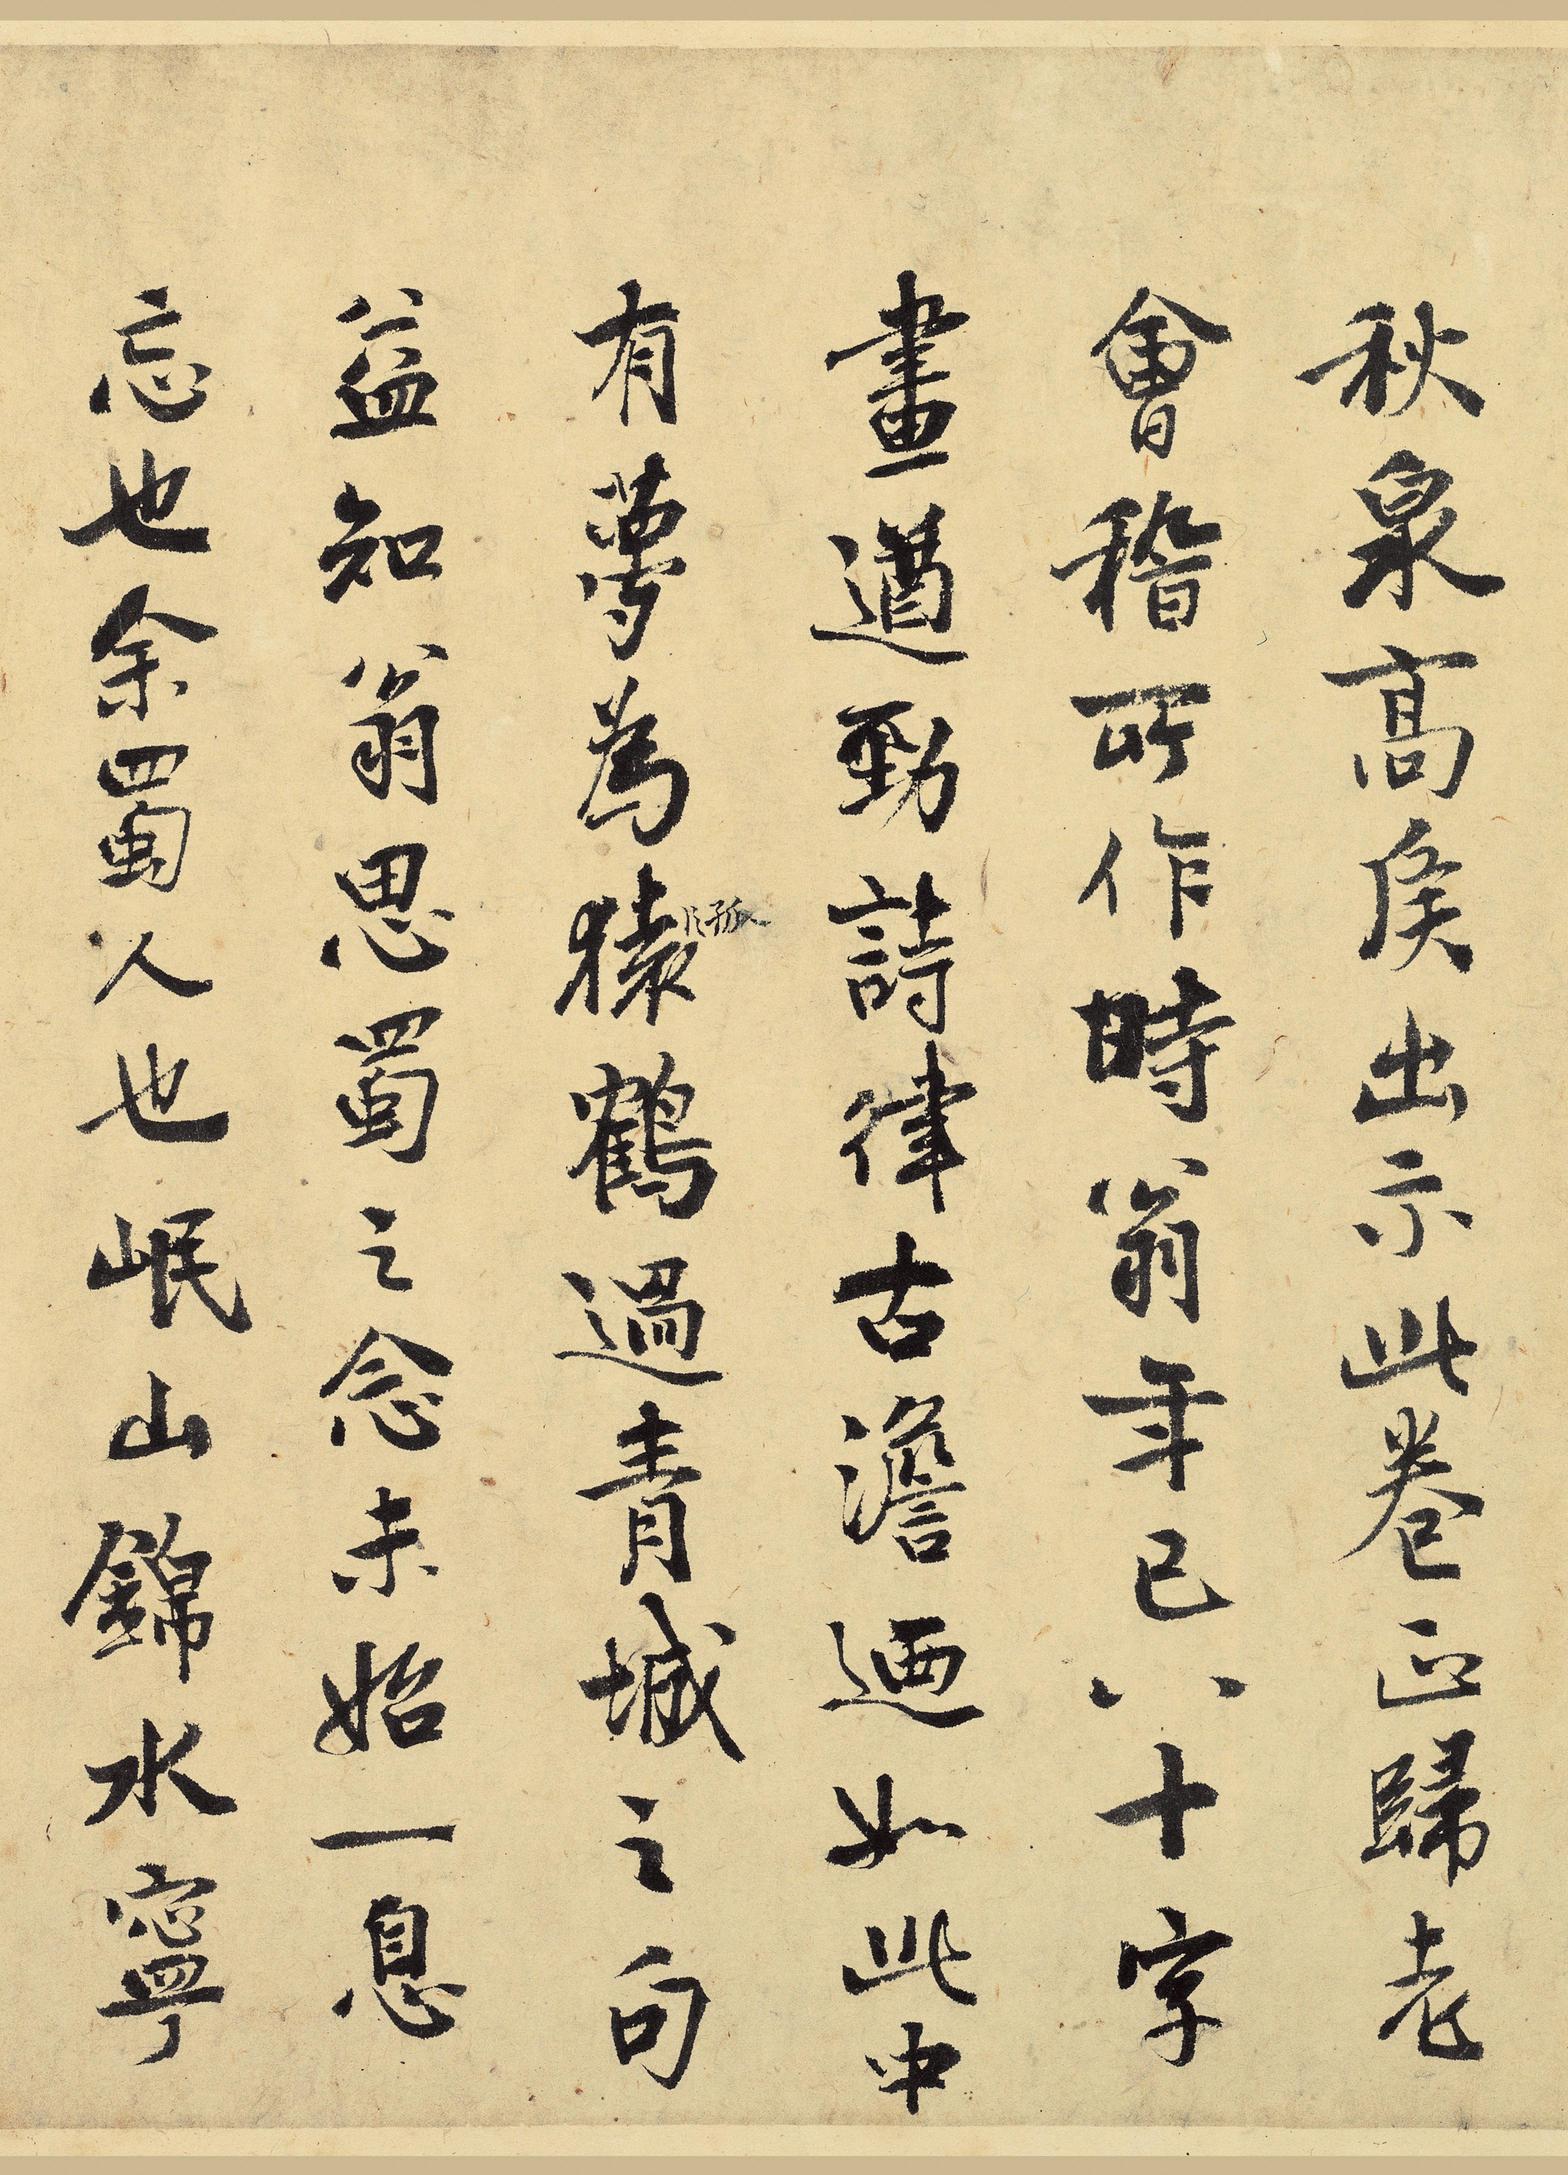 秋泉高侯出示此卷正歸老
會稽所作時翁年已八十字
畫遒勁詩律古澹迺如此中
有夢為猿鶴過青城之句
孤
益知翁思蜀之念未始一息
忘也余蜀人也岷山錦水寧